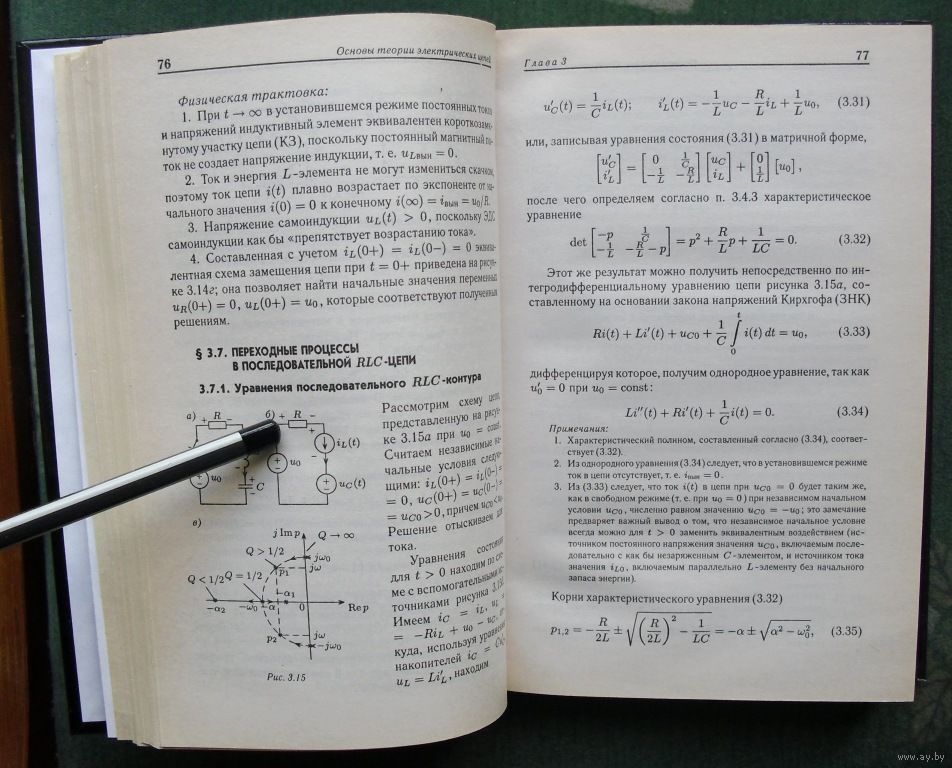 76
Основы теории электрических цепей
Физическая трактовка:
1. При t → ∞ в установившемся режиме постоянных токов
и напряжений индуктивный элемент эквивалентен короткозамк-
нутому участку цепи (КЗ), поскольку постоянный магнитный по-
ток не создает напряжение индукции, т. е. u_Lвын = 0.
2. Ток и энергия L-элемента не могут измениться скачком,
поэтому ток цепи i(t) плавно возрастает по экспоненте от на-
чального значения i(0) = 0 к конечному i(∞) = i_вын = u₀/R.
3. Напряжение самоиндукции u_L(t) > 0, поскольку ЭДС
самоиндукции как бы «препятствует возрастанию тока».
4. Составленная с учетом i_L(0+) = i_L(0−) = 0 эквива-
лентная схема замещения цепи при t = 0+ приведена на рисун-
ке 3.14г; она позволяет найти начальные значения переменных
u_R(0+) = 0, u_L(0+) = u₀, которые соответствуют полученным
решениям.
§ 3.7. ПЕРЕХОДНЫЕ ПРОЦЕССЫ
В ПОСЛЕДОВАТЕЛЬНОЙ RLC-ЦЕПИ
3.7.1. Уравнения последовательного RLC-контура
а) + R − б) + R −
+ i_L(t)
u₀ C u₀ u_C(t)
в)
j Im p Q → ∞
Q > 1/2 jω₀
p₁ jω
Q < 1/2 Q = 1/2
−α₁
−α₂ −ω₀ −α 0 Re p
p₂ −jω
−jω₀
Рис. 3.15
Рассмотрим схему цепи,
представленную на рисун-
ке 3.15а при u₀ = const.
Считаем независимые на-
чальные условия следую-
щими: i_L(0+) = i_L(0−) =
= 0, u_C(0+) = u_C(0−) =
= u_C0 > 0, причем u_C0 < u₀.
Решение отыскиваем для
тока.
Уравнения состояния
для t > 0 находим по схе-
ме с вспомогательными ис-
точниками рисунка 3.15б.
Имеем i_C = i_L, u_L =
= −Ri_L + u₀ − u_C, от-
куда, используя уравнения
накопителей i_C = Cu′_C,
u_L = Li′_L, находим
Глава 3
77
u′_C(t) = (1/C) i_L(t); i′_L(t) = −(1/L) u_C − (R/L) i_L + (1/L) u₀, (3.31)
или, записывая уравнения состояния (3.31) в матричной форме,
[u′_C; i′_L] = [0 1/C; −1/L −R/L] [u_C; i_L] + [0; 1/L] [u₀],
после чего определяем согласно п. 3.4.3 характеристическое
уравнение
det [−p 1/C; −1/L −R/L − p] = p² + (R/L) p + 1/LC = 0. (3.32)
Этот же результат можно получить непосредственно по ин-
тегродифференциальному уравнению цепи рисунка 3.15а, со-
ставленному на основании закона напряжений Кирхгофа (ЗНК)
Ri(t) + Li′(t) + u_C0 + (1/C) ∫₀ᵗ i(t) dt = u₀, (3.33)
дифференцируя которое, получим однородное уравнение, так как
u′₀ = 0 при u₀ = const:
Li″(t) + Ri′(t) + (1/C) i(t) = 0. (3.34)
Примечания:
1. Характеристический полином, составленный согласно (3.34), соответ-
ствует (3.32).
2. Из однородного уравнения (3.34) следует, что в установившемся режиме
ток в цепи отсутствует, т. е. i_вын = 0.
3. Из (3.33) следует, что ток i(t) в цепи при u_C0 = 0 будет таким же,
как в свободном режиме (т. е. при u₀ = 0) при независимом начальном
условии u_C0, численно равном значению u_C0 = −u₀; это замечание
предваряет важный вывод о том, что независимое начальное условие
всегда можно для t > 0 заменить эквивалентным воздействием (ис-
точником постоянного напряжения значения u_C0, включаемым после-
довательно с как бы незаряженным C-элементом, и источником тока
значения i_L0, включаемым параллельно L-элементу без начального
запаса энергии).
Корни характеристического уравнения (3.32)
p₁,₂ = −R/2L ± √((R/2L)² − 1/LC) = −α ± √(α² − ω₀²), (3.35)
www.ay.by